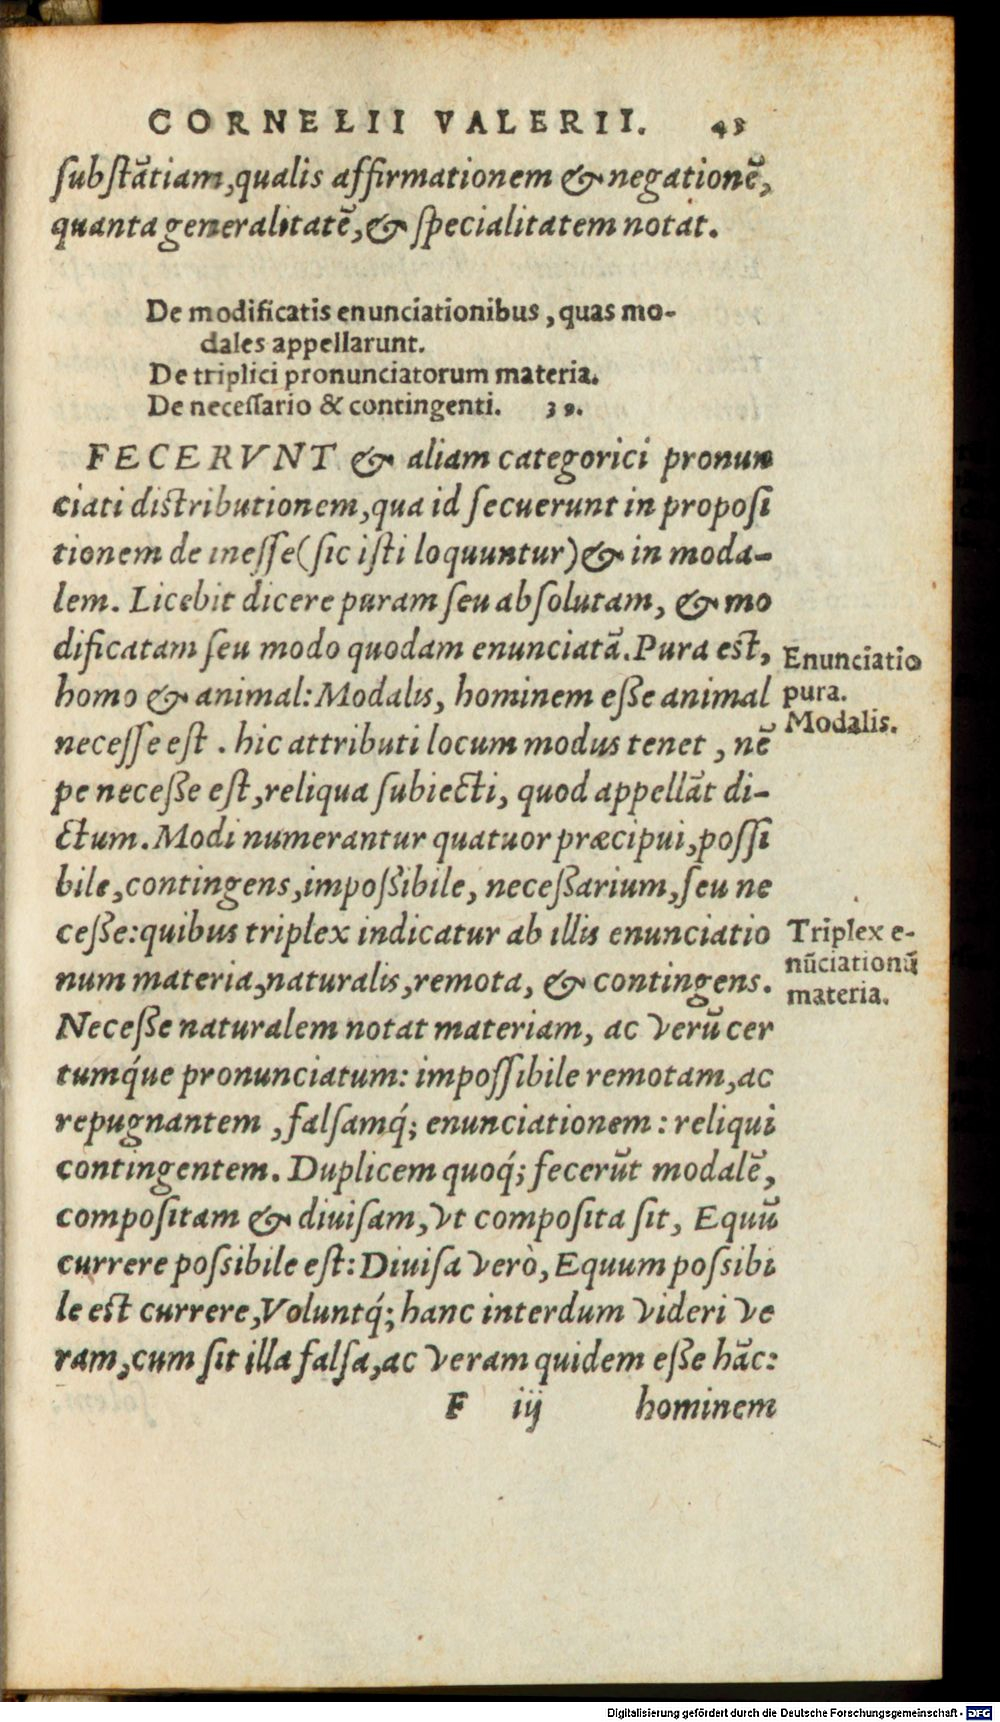 CORNELII VALERII. 43
ſubſtãtiam, qualis affirmationem & negationẽ,
quanta generalitatẽ, & ſpecialitatem notat.
De modificatis enunciationibus, quas mo-
dales appellarunt.
De triplici pronunciatorum materia.
De neceſſario & contingenti. 39.
FECERVNT & aliam categorici pronun
ciati distributionem, qua id ſecuerunt in propoſi
tionem de ineſſe (ſic iſti loquuntur) & in moda-
lem. Licebit dicere puram ſeu abſolutam, & mo
dificatam ſeu modo quodam enunciatã. Pura est,
homo & animal: Modalis, hominem eſſe animal
neceſſe eſt. hic attributi locum modus tenet, nẽ
pe neceſſe eſt, reliqua ſubiecti, quod appellãt di-
ctum. Modi numerantur quatuor præcipui, poſſi
bile, contingens, impoſſibile, neceſſarium, ſeu ne
ceſſe: quibus triplex indicatur ab illis enunciatio
num materia, naturalis, remota, & contingens.
Neceſſe naturalem notat materiam, ac verũ cer
tumq́ue pronunciatum: impoſſibile remotam, ac
repugnantem, falſamq́; enunciationem: reliqui
contingentem. Duplicem quoq́; fecerũt modalẽ,
compoſitam & diuiſam, vt compoſita ſit, Equũ
currere poſsibile est: Diuiſa verò, Equum poſsibi
le est currere, Voluntq́; hanc interdum videri ve
ram, cum ſit illa falſa, ac veram quidem eſſe hãc:
F iij hominem
Enunciatio
pura.
Modalis.
Triplex e-
nũciationũ
materia.
Digitalisierung gefördert durch die Deutsche Forschungsgemeinschaft - DFG